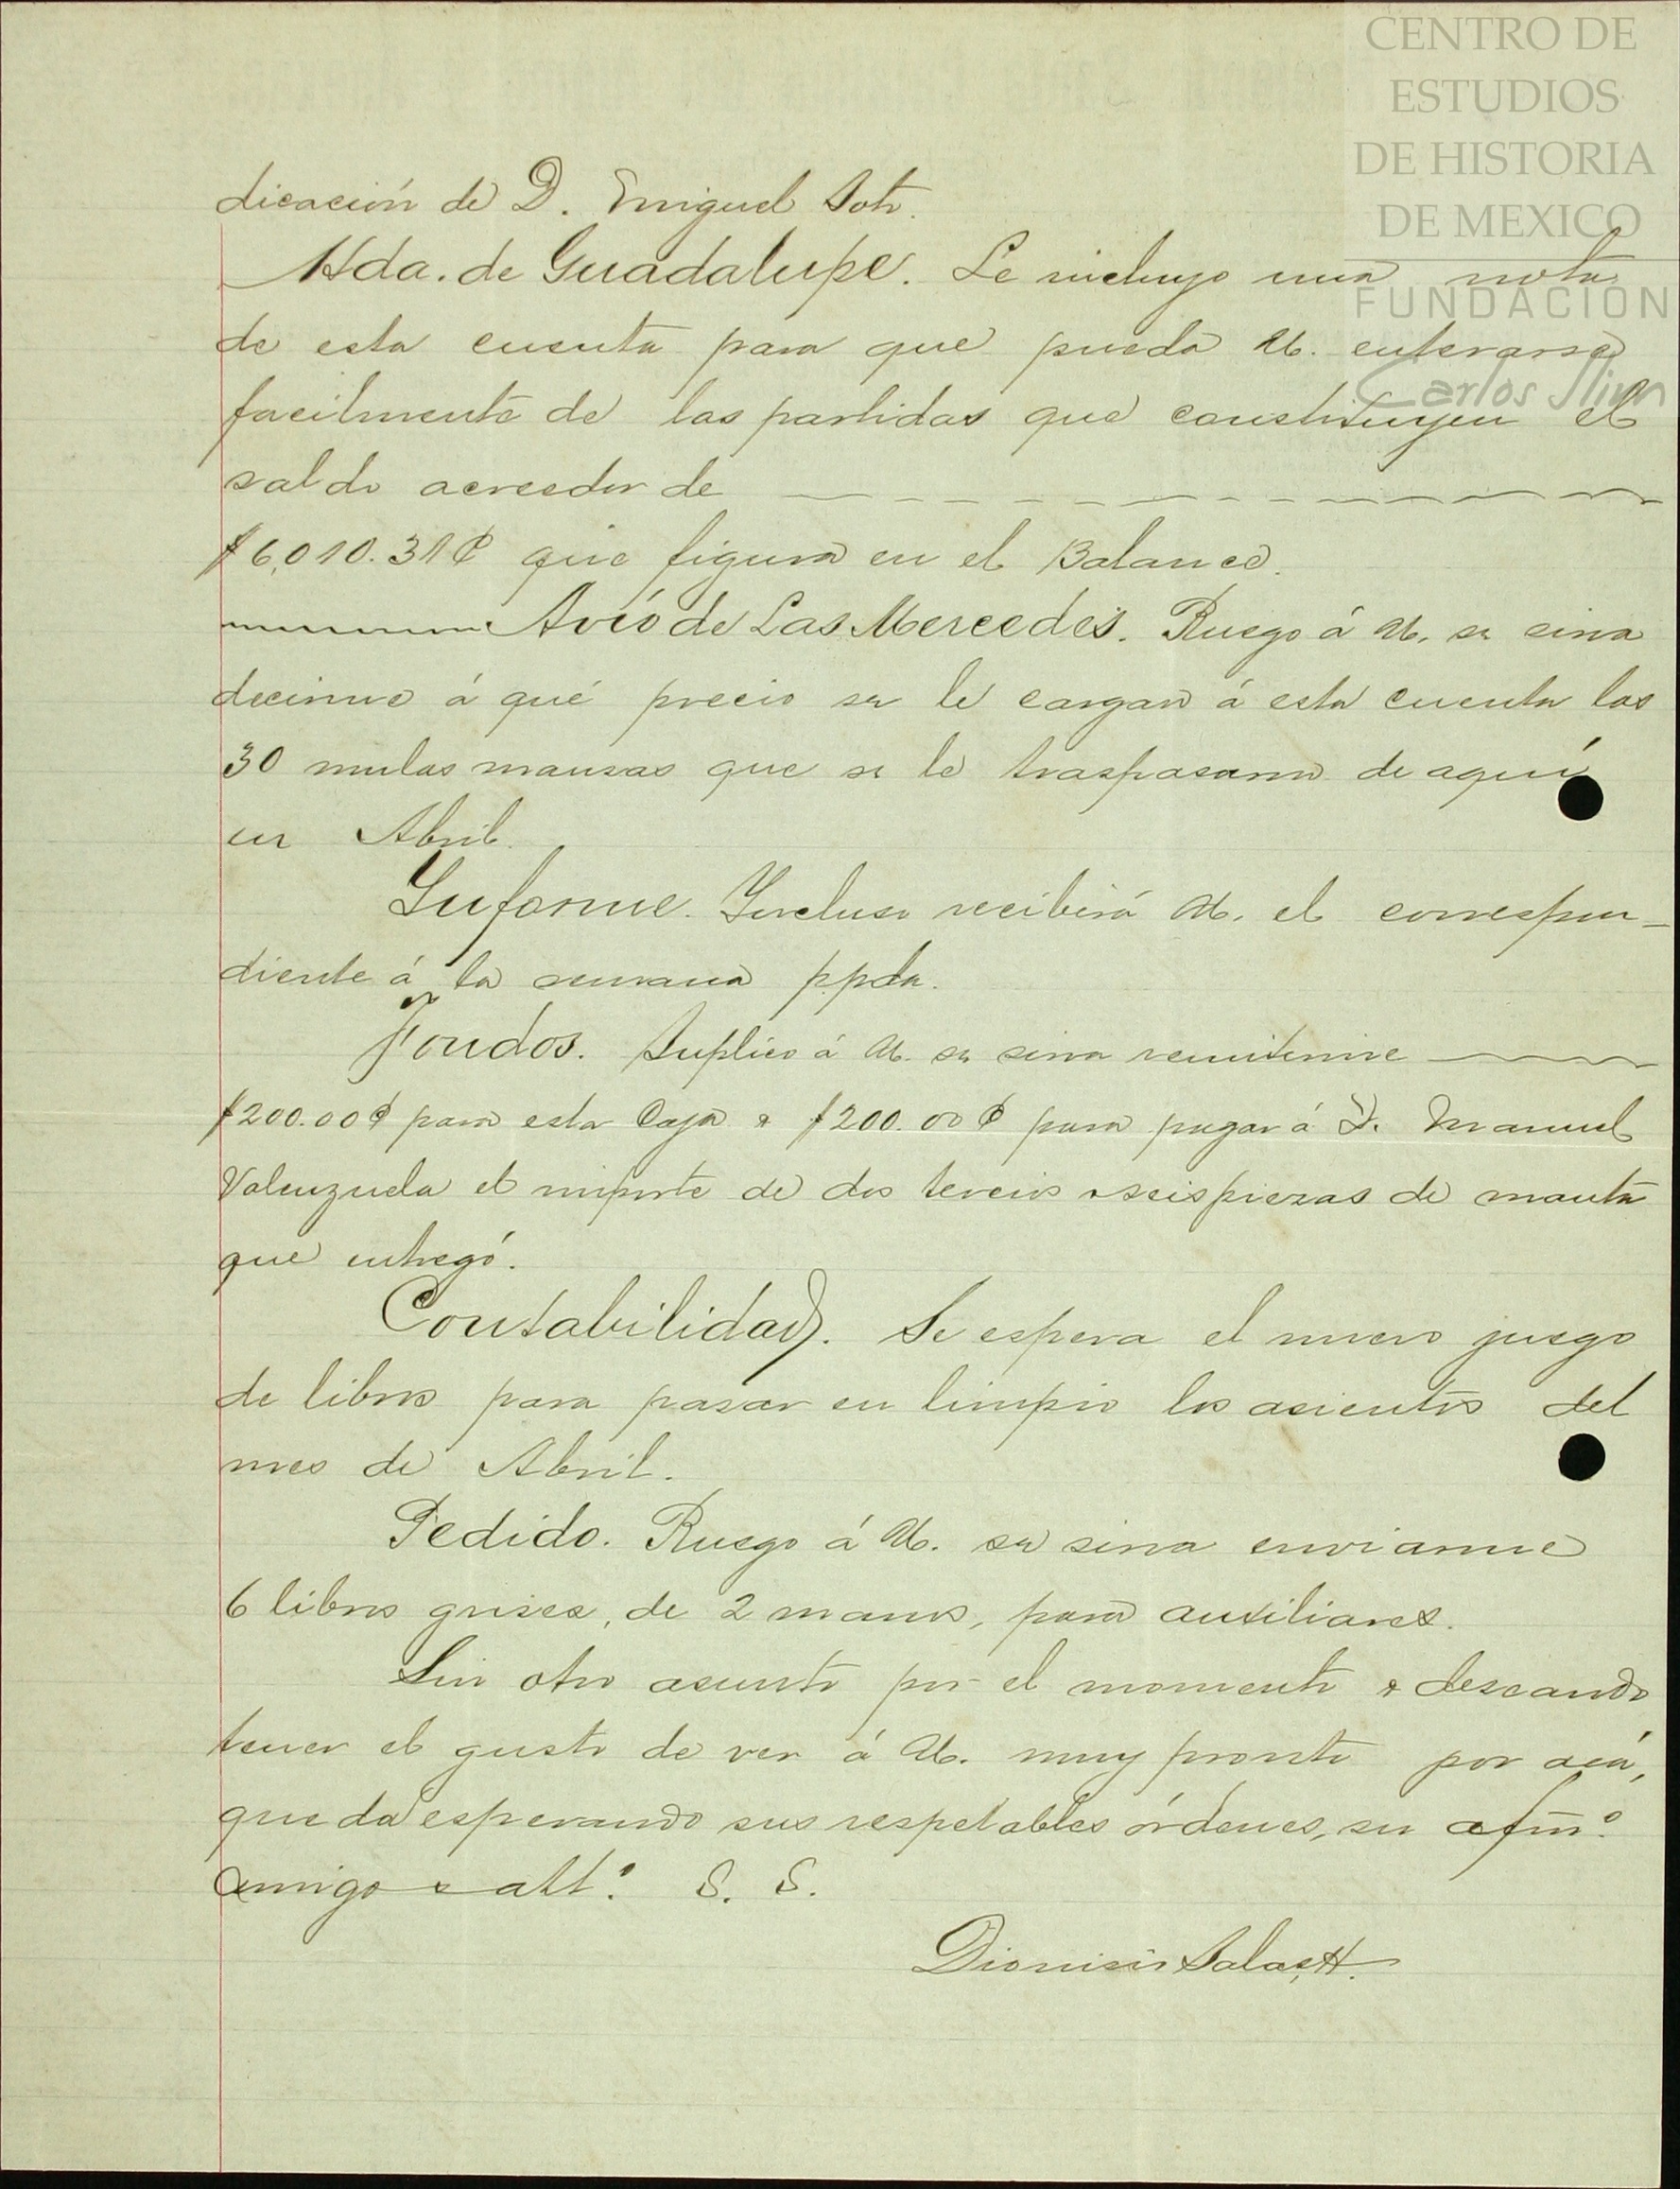 CENTRO DE
ESTUDIOS
DE HISTORIA
DE MEXICO
FUNDACIÓN
Carlos Slim
dicación de D. Miguel Soto.
Hda. de Guadalupe. Le incluyo una nota
de esta cuenta para que pueda U. enterarse
facilmente de las partidas que constituyen el
saldo acreedor de
$6,010.31¢ que figura en el Balance.
Avío de Las Mercedes. Ruego á U. se sirva
decirme á qué precio se le cargan á esta cuenta las
30 mulas mansas que se le traspasaron de aquí
en Abril.
Informe. Incluso recibirá U. el correspon-
diente á la semana ppda.
Fondos. Suplico á U. se sirva remitirme
$200.00¢ para esta Caja y $200.00¢ para pagar á D. Manuel
Valenzuela el importe de dos tercios y seis piezas de manta
que entregó.
Contabilidad. Se espera el nuevo juego
de libros para pasar en limpio los asientos del
mes de Abril.
Pedido. Ruego á U. se sirva enviarme
6 libros grises, de 2 manos, para auxiliares.
Sin otro asunto por el momento y deseando
tener el gusto de ver á U. muy pronto por acá,
queda esperando sus respetables órdenes, su afmo.
amigo y atto. S. S.
Dionisio Salas H.